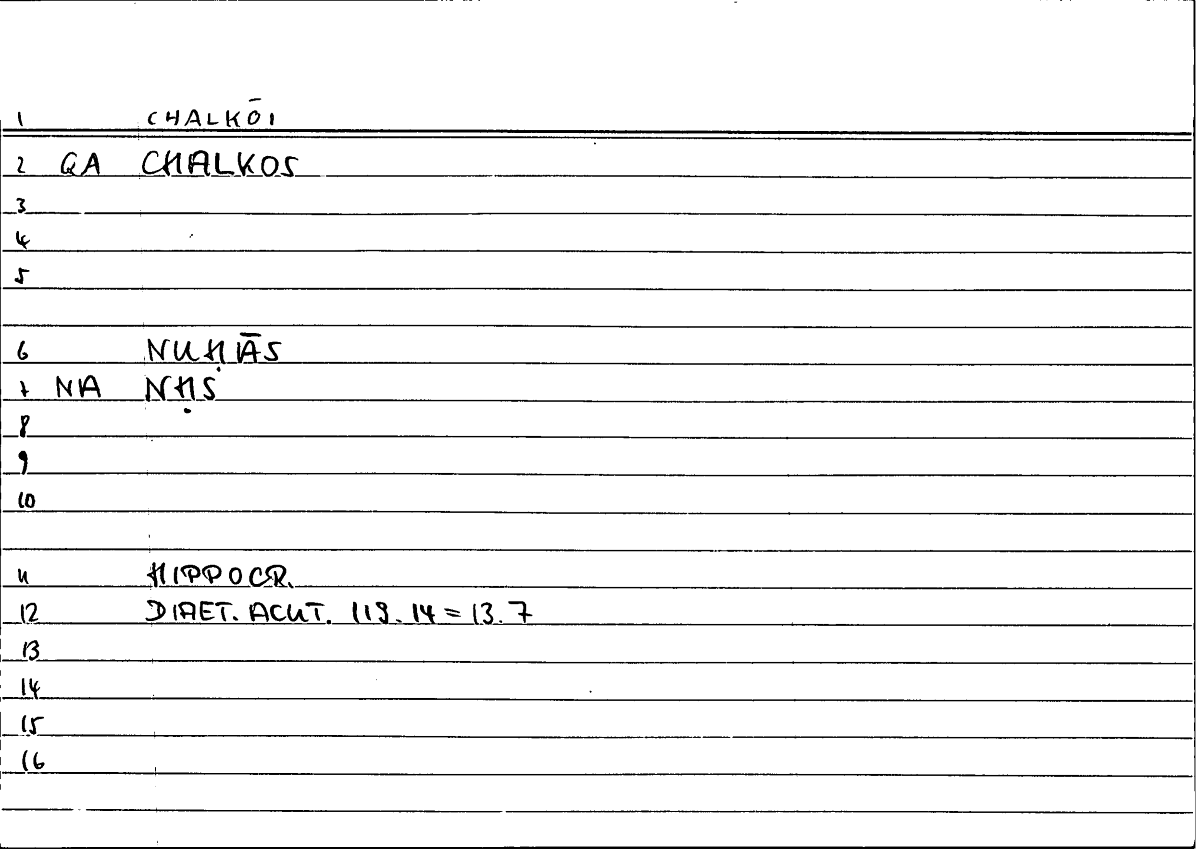 1 CHALKŌI
2 QA CHALKOS
3
4
5
6 NUḤĀS
7 NA NḤS
8
9
10
11 HIPPOCR.
12 DIAET. ACUT. 119.14 = 13.7
13
14
15
16